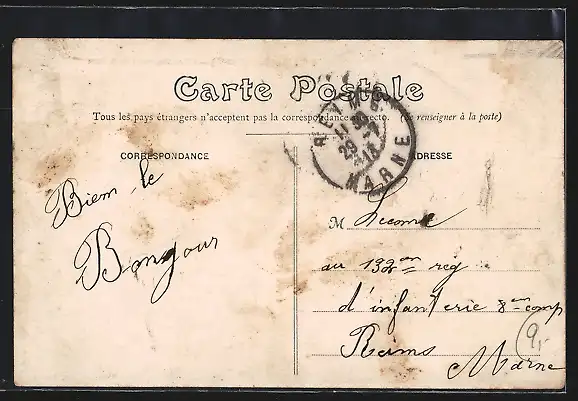 Carte Postale
Tous les pays étrangers n'acceptent pas la correspondance au recto. (Se renseigner à la poste)
CORRESPONDANCE
ADRESSE
REIMS
29
MARNE
Biem le
Bonjour
M
au 132 em reg
d'infanterie 8 em comp
Reims
Marne
9,-